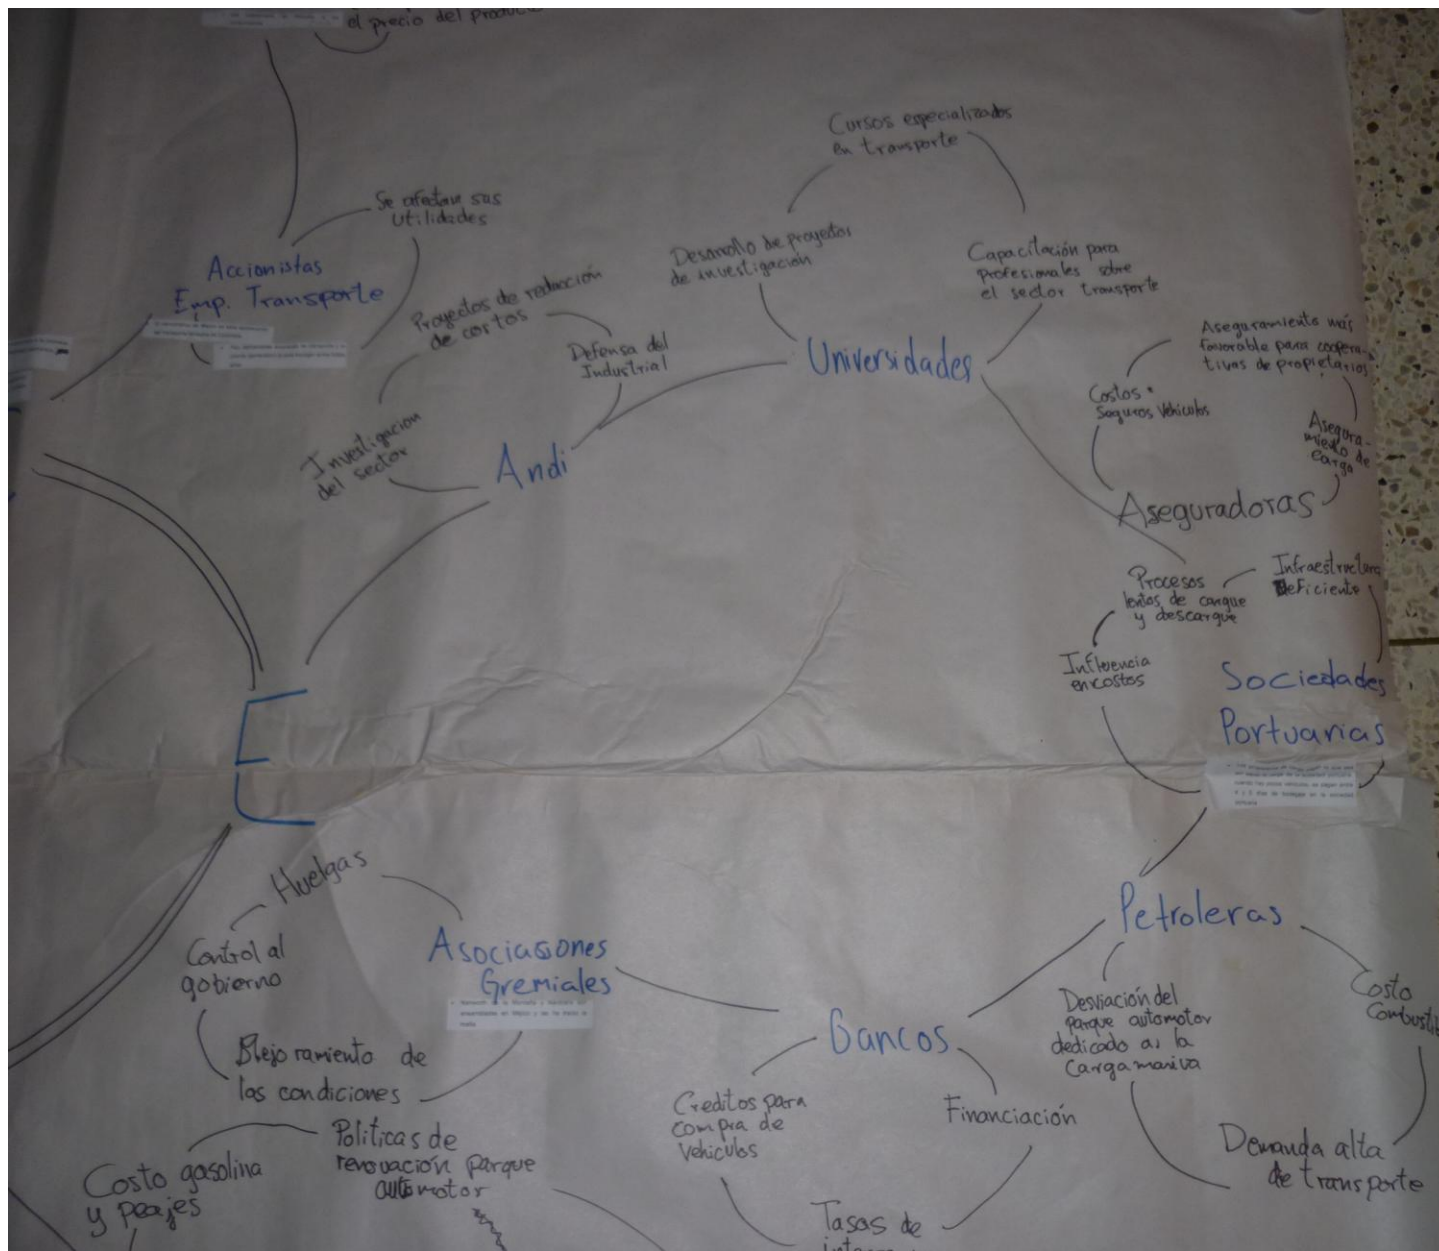 el precio del producto
Cursos especializados
en transporte
Se afectan sus
utilidades
Accionistas
Emp. Transporte
Desarrollo de proyectos
de investigación
Capacitación para
profesionales sobre
el sector transporte
Proyectos de reducción
de costos
Defensa del
Industrial
Universidades
Aseguramiento más
favorable para coopera-
tivas de propietarios
Costos
Seguros Vehiculos
Asegura-
miento de
carga
Investigación
del sector
Andi
Aseguradoras
Procesos
lentos de cargue
y descargue
Infraestructura
Deficiente
Influencia
en costos
Sociedades
Portuarias
E
Huelgas
Control al
gobierno
Asociaciones
Gremiales
Mejoramiento de
las condiciones
Petroleras
Desviación del
parque automotor
dedicado a la
Carga masiva
Costo
Combusti
Bancos
Creditos para
compra de
Vehiculos
Financiación
Demanda alta
de transporte
Politicas de
renovación parque
automotor
Costo gasolina
y peajes
Tasas de